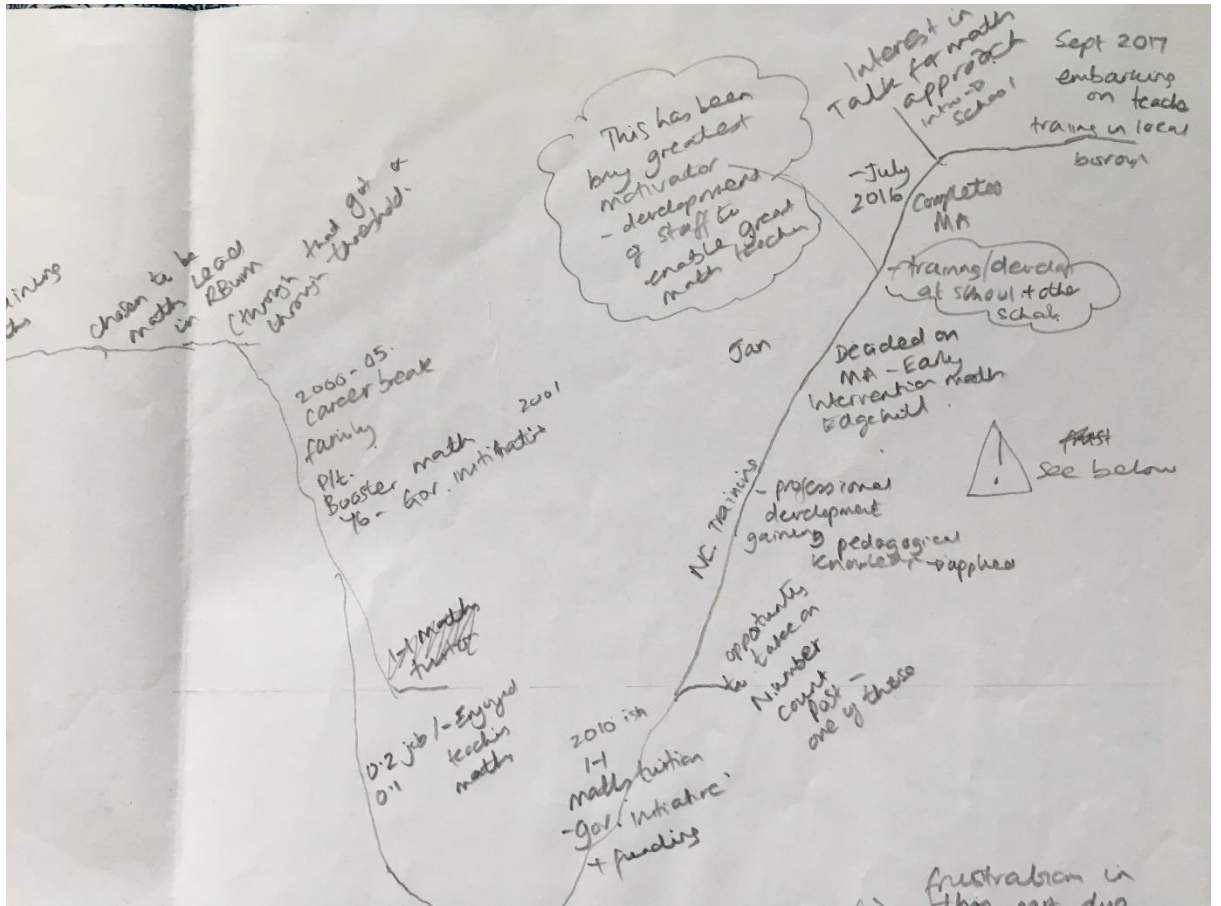 chosen to be
math Lead
in RBWM
(through that got
through threshold.
2000-05.
Career break
family
P/t.
Booster math 2001
Y6- Gov. initiative
1-1 maths
tutor
0.2 job /-Enjoyed
0.1 teaching
maths
2010 ish
1-1
maths tuition
-gov. initiative
+ funding
opportunity
to take on
Number
count
Post -
one of those
NC. Training
- professional
development
gaining
pedagogical
knowledge → applied
Jan
Decided on
MA - Early
Intervention math
Edgehill
!
see below
This has been
my greatest
motivator
- development
of staff to
enable great
math teacher
-training/develop
at school + other
schools
-July
2016
Completed
MA
Interest in
Talk for math
approach
into
school
Sept 2017
embarking
on teache
traing in local
borough
frustration in
this